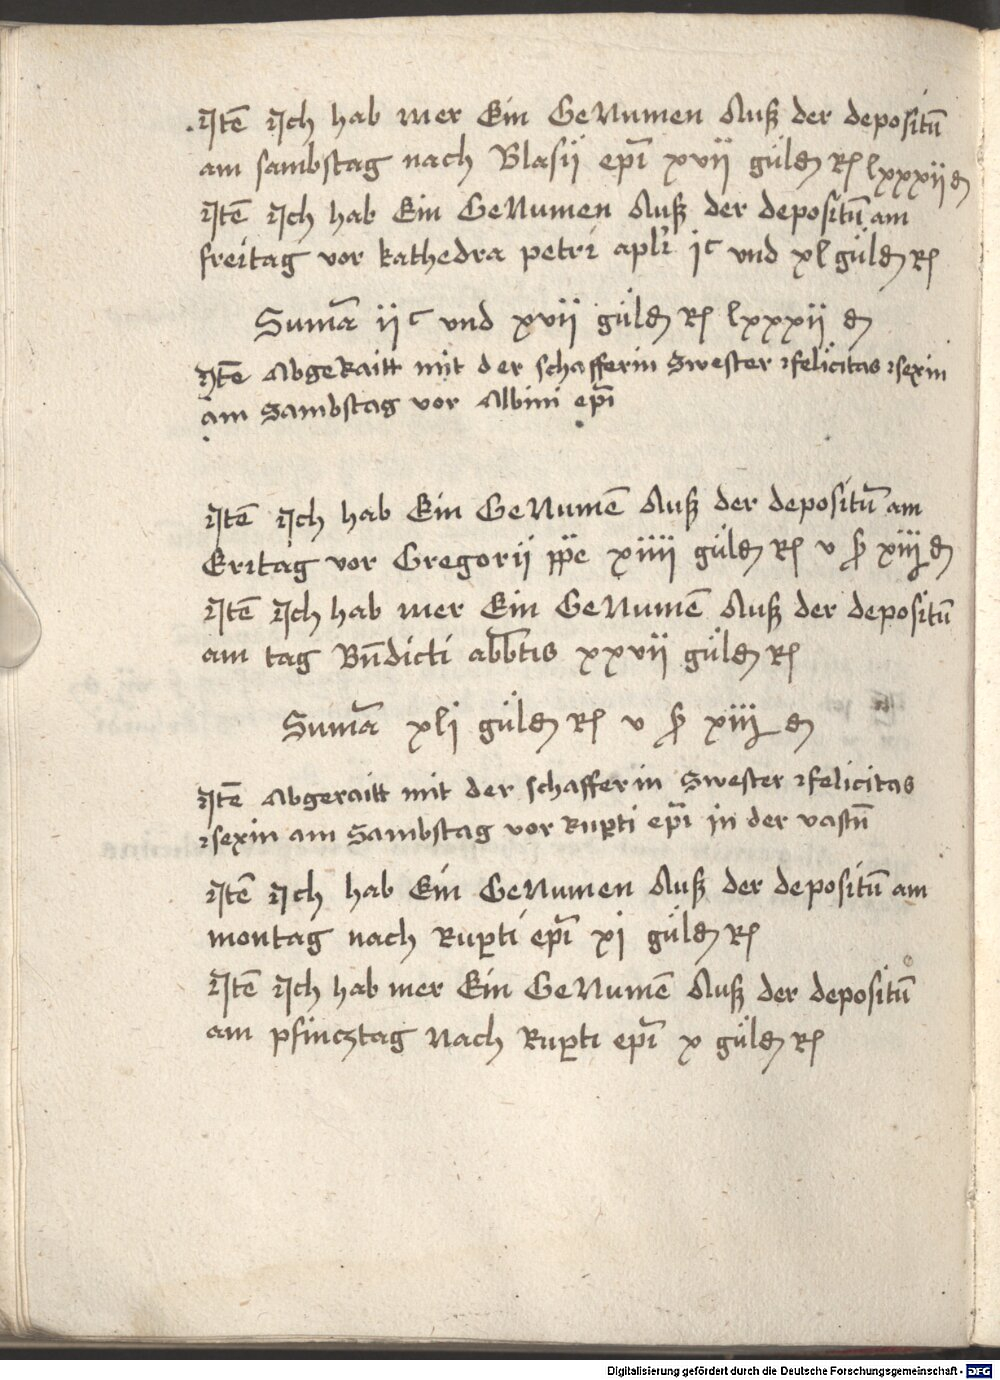 Itē Ich hab mer Ein GeNumen Auß der depositū
am sambstag nach Blasii ep̄i xvii güldɳ Rſ lxxxii ₰
Itē Ich hab Ein GeNumen Auß der depositū am
freitag vor kathedra petri apl̄i jᶜ und xl güldɳ Rſ
Sum̄a iiᶜ und xvii güldɳ Rſ lxxxii ₰
Itē AbgeRaitt mit der schafferin Swester felicitas
am Sambstag vor Albini ep̄i
Itē Ich hab Ein GeNumē Auß der depositū am
Eritag vor Gregorii pp̄e xiiii güldɳ Rſ v ß xiii ₰
Itē Ich hab mer Ein GeNumē Auß der depositū
am tag Bn̄dicti abb̄tis xxvii güldɳ Rſ
Sum̄a xli güldɳ Rſ v ß xiii ₰
Itē Abgeraitt mit der schafferin Swester felicitas
am Sambstag vor Ruꝑti ep̄i in der vastn̄
Itē Ich hab Ein GeNumen Auß der depositū am
montag nach Ruꝑti ep̄i xi güldɳ Rſ
Itē Ich hab mer Ein GeNumē Auß der depositū
am pfincztag Nach Ruꝑti ep̄i x güldɳ Rſ
Digitalisierung gefördert durch die Deutsche Forschungsgemeinschaft - DFG